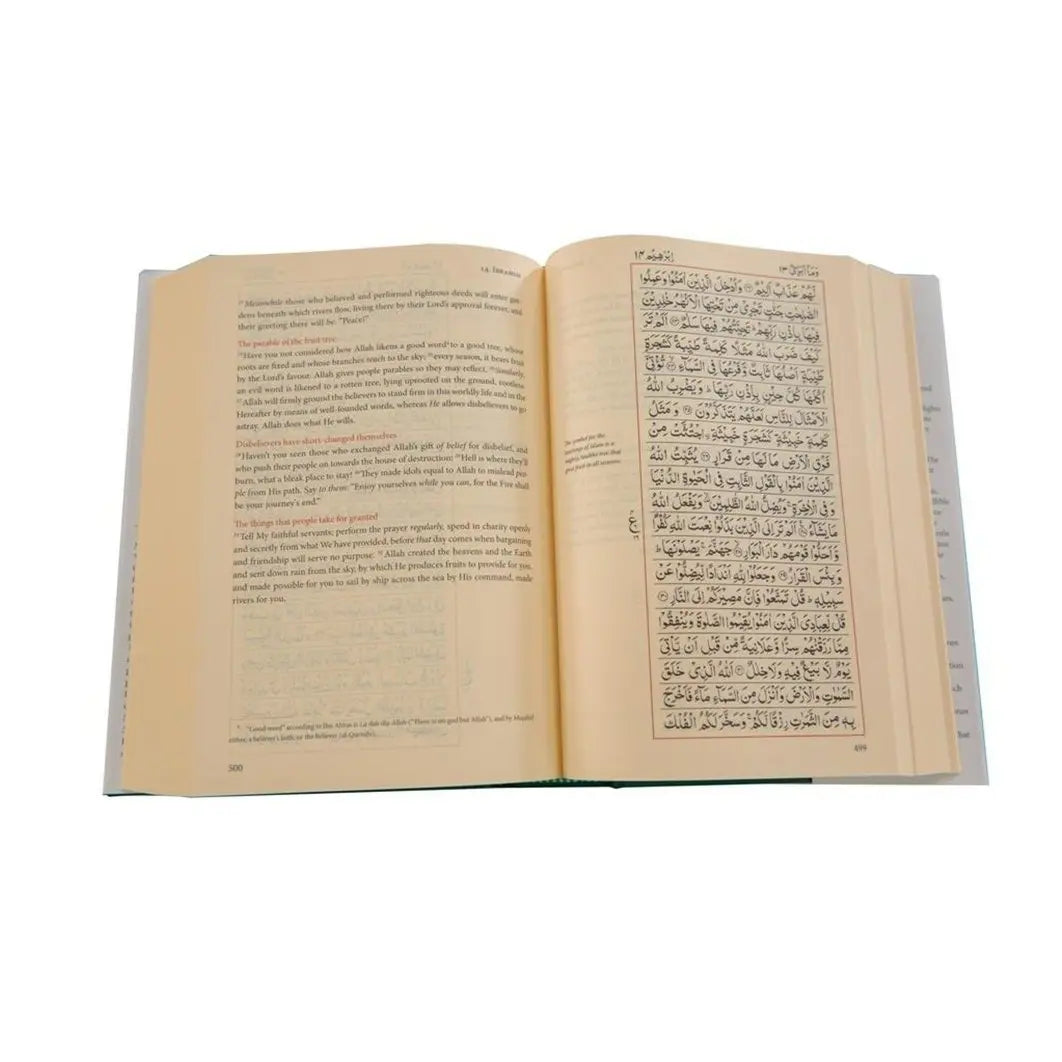 وَمَآ اُبَرِّئُ ١٣
اِبْرٰهِيْم ١٤
لَهُمْ عَذَابٌ اَلِيْمٌ ﴿٢٢﴾ وَاُدْخِلَ الَّذِيْنَ اٰمَنُوْا وَعَمِلُوا
الصّٰلِحٰتِ جَنّٰتٍ تَجْرِيْ مِنْ تَحْتِهَا الْاَنْهٰرُ خٰلِدِيْنَ
فِيْهَا بِاِذْنِ رَبِّهِمْ ؕ تَحِيَّتُهُمْ فِيْهَا سَلٰمٌ ﴿٢٣﴾ اَلَمْ تَرَ
كَيْفَ ضَرَبَ اللّٰهُ مَثَلًا كَلِمَةً طَيِّبَةً كَشَجَرَةٍ
طَيِّبَةٍ اَصْلُهَا ثَابِتٌ وَّفَرْعُهَا فِي السَّمَآءِ ﴿٢٤﴾ تُؤْتِيْٓ
اُكُلَهَا كُلَّ حِيْنٍ بِاِذْنِ رَبِّهَا ؕ وَيَضْرِبُ اللّٰهُ
الْاَمْثَالَ لِلنَّاسِ لَعَلَّهُمْ يَتَذَكَّرُوْنَ ﴿٢٥﴾ وَمَثَلُ
كَلِمَةٍ خَبِيْثَةٍ كَشَجَرَةٍ خَبِيْثَةِ ۨاجْتُثَّتْ مِنْ
فَوْقِ الْاَرْضِ مَا لَهَا مِنْ قَرَارٍ ﴿٢٦﴾ يُثَبِّتُ اللّٰهُ
الَّذِيْنَ اٰمَنُوْا بِالْقَوْلِ الثَّابِتِ فِي الْحَيٰوةِ الدُّنْيَا
وَفِي الْاٰخِرَةِ ۚ وَيُضِلُّ اللّٰهُ الظّٰلِمِيْنَ ۙ وَيَفْعَلُ اللّٰهُ
مَا يَشَآءُ ﴿٢٧﴾ اَلَمْ تَرَ اِلَى الَّذِيْنَ بَدَّلُوْا نِعْمَتَ اللّٰهِ كُفْرًا
وَّاَحَلُّوْا قَوْمَهُمْ دَارَ الْبَوَارِ ﴿٢٨﴾ جَهَنَّمَ ۚ يَصْلَوْنَهَا ؕ
وَبِئْسَ الْقَرَارُ ﴿٢٩﴾ وَجَعَلُوْا لِلّٰهِ اَنْدَادًا لِّيُضِلُّوْا عَنْ
سَبِيْلِهٖ ؕ قُلْ تَمَتَّعُوْا فَاِنَّ مَصِيْرَكُمْ اِلَى النَّارِ ﴿٣٠﴾
قُلْ لِّعِبَادِيَ الَّذِيْنَ اٰمَنُوْا يُقِيْمُوا الصَّلٰوةَ وَيُنْفِقُوْا
مِمَّا رَزَقْنٰهُمْ سِرًّا وَّعَلَانِيَةً مِّنْ قَبْلِ اَنْ يَّأْتِيَ
يَوْمٌ لَّا بَيْعٌ فِيْهِ وَلَا خِلٰلٌ ﴿٣١﴾ اَللّٰهُ الَّذِيْ خَلَقَ
السَّمٰوٰتِ وَالْاَرْضَ وَاَنْزَلَ مِنَ السَّمَآءِ مَآءً فَاَخْرَجَ
بِهٖ مِنَ الثَّمَرٰتِ رِزْقًا لَّكُمْ ۚ وَسَخَّرَ لَكُمُ الْفُلْكَ
ع
The symbol for the
teachings of Islam is a
mighty, fruitlike tree that
gives fruit in all seasons.
499
14. IBRAHIM
²³Meanwhile those who believed and performed righteous deeds will enter gar-
dens beneath which rivers flow, living there by their Lord's approval forever, and
their greeting there will be: "Peace!"
The parable of the fruit tree
²⁴Have you not considered how Allah likens a good word⁶ to a good tree, whose
roots are fixed and whose branches reach to the sky; ²⁵every season, it bears fruit
by the Lord's favour. Allah gives people parables so they may reflect. ²⁶Similarly,
an evil word is likened to a rotten tree, lying uprooted on the ground, rootless.
²⁷Allah will firmly ground the believers to stand firm in this worldly life and in the
Hereafter by means of well-founded words, whereas He allows disbelievers to go
astray. Allah does what He wills.
Disbelievers have short-changed themselves
²⁸Haven't you seen those who exchanged Allah's gift of belief for disbelief, and
who push their people on towards the house of destruction: ²⁹Hell is where they'll
burn, what a bleak place to stay! ³⁰They made idols equal to Allah to mislead peo-
ple from His path. Say to them: "Enjoy yourselves while you can, for the Fire shall
be your journey's end."
The things that people take for granted
³¹Tell My faithful servants; perform the prayer regularly, spend in charity openly
and secretly from what We have provided, before that day comes when bargaining
and friendship will serve no purpose. ³²Allah created the heavens and the Earth
and sent down rain from the sky, by which He produces fruits to provide for you,
and made possible for you to sail by ship across the sea by His command, made
rivers for you,
6. "Good word" according to Ibn Abbas is La ilah illa Allah ("There is no god but Allah"), and by Mujahid
either, a believer's faith, or the Believer (al-Qurtubi).
500